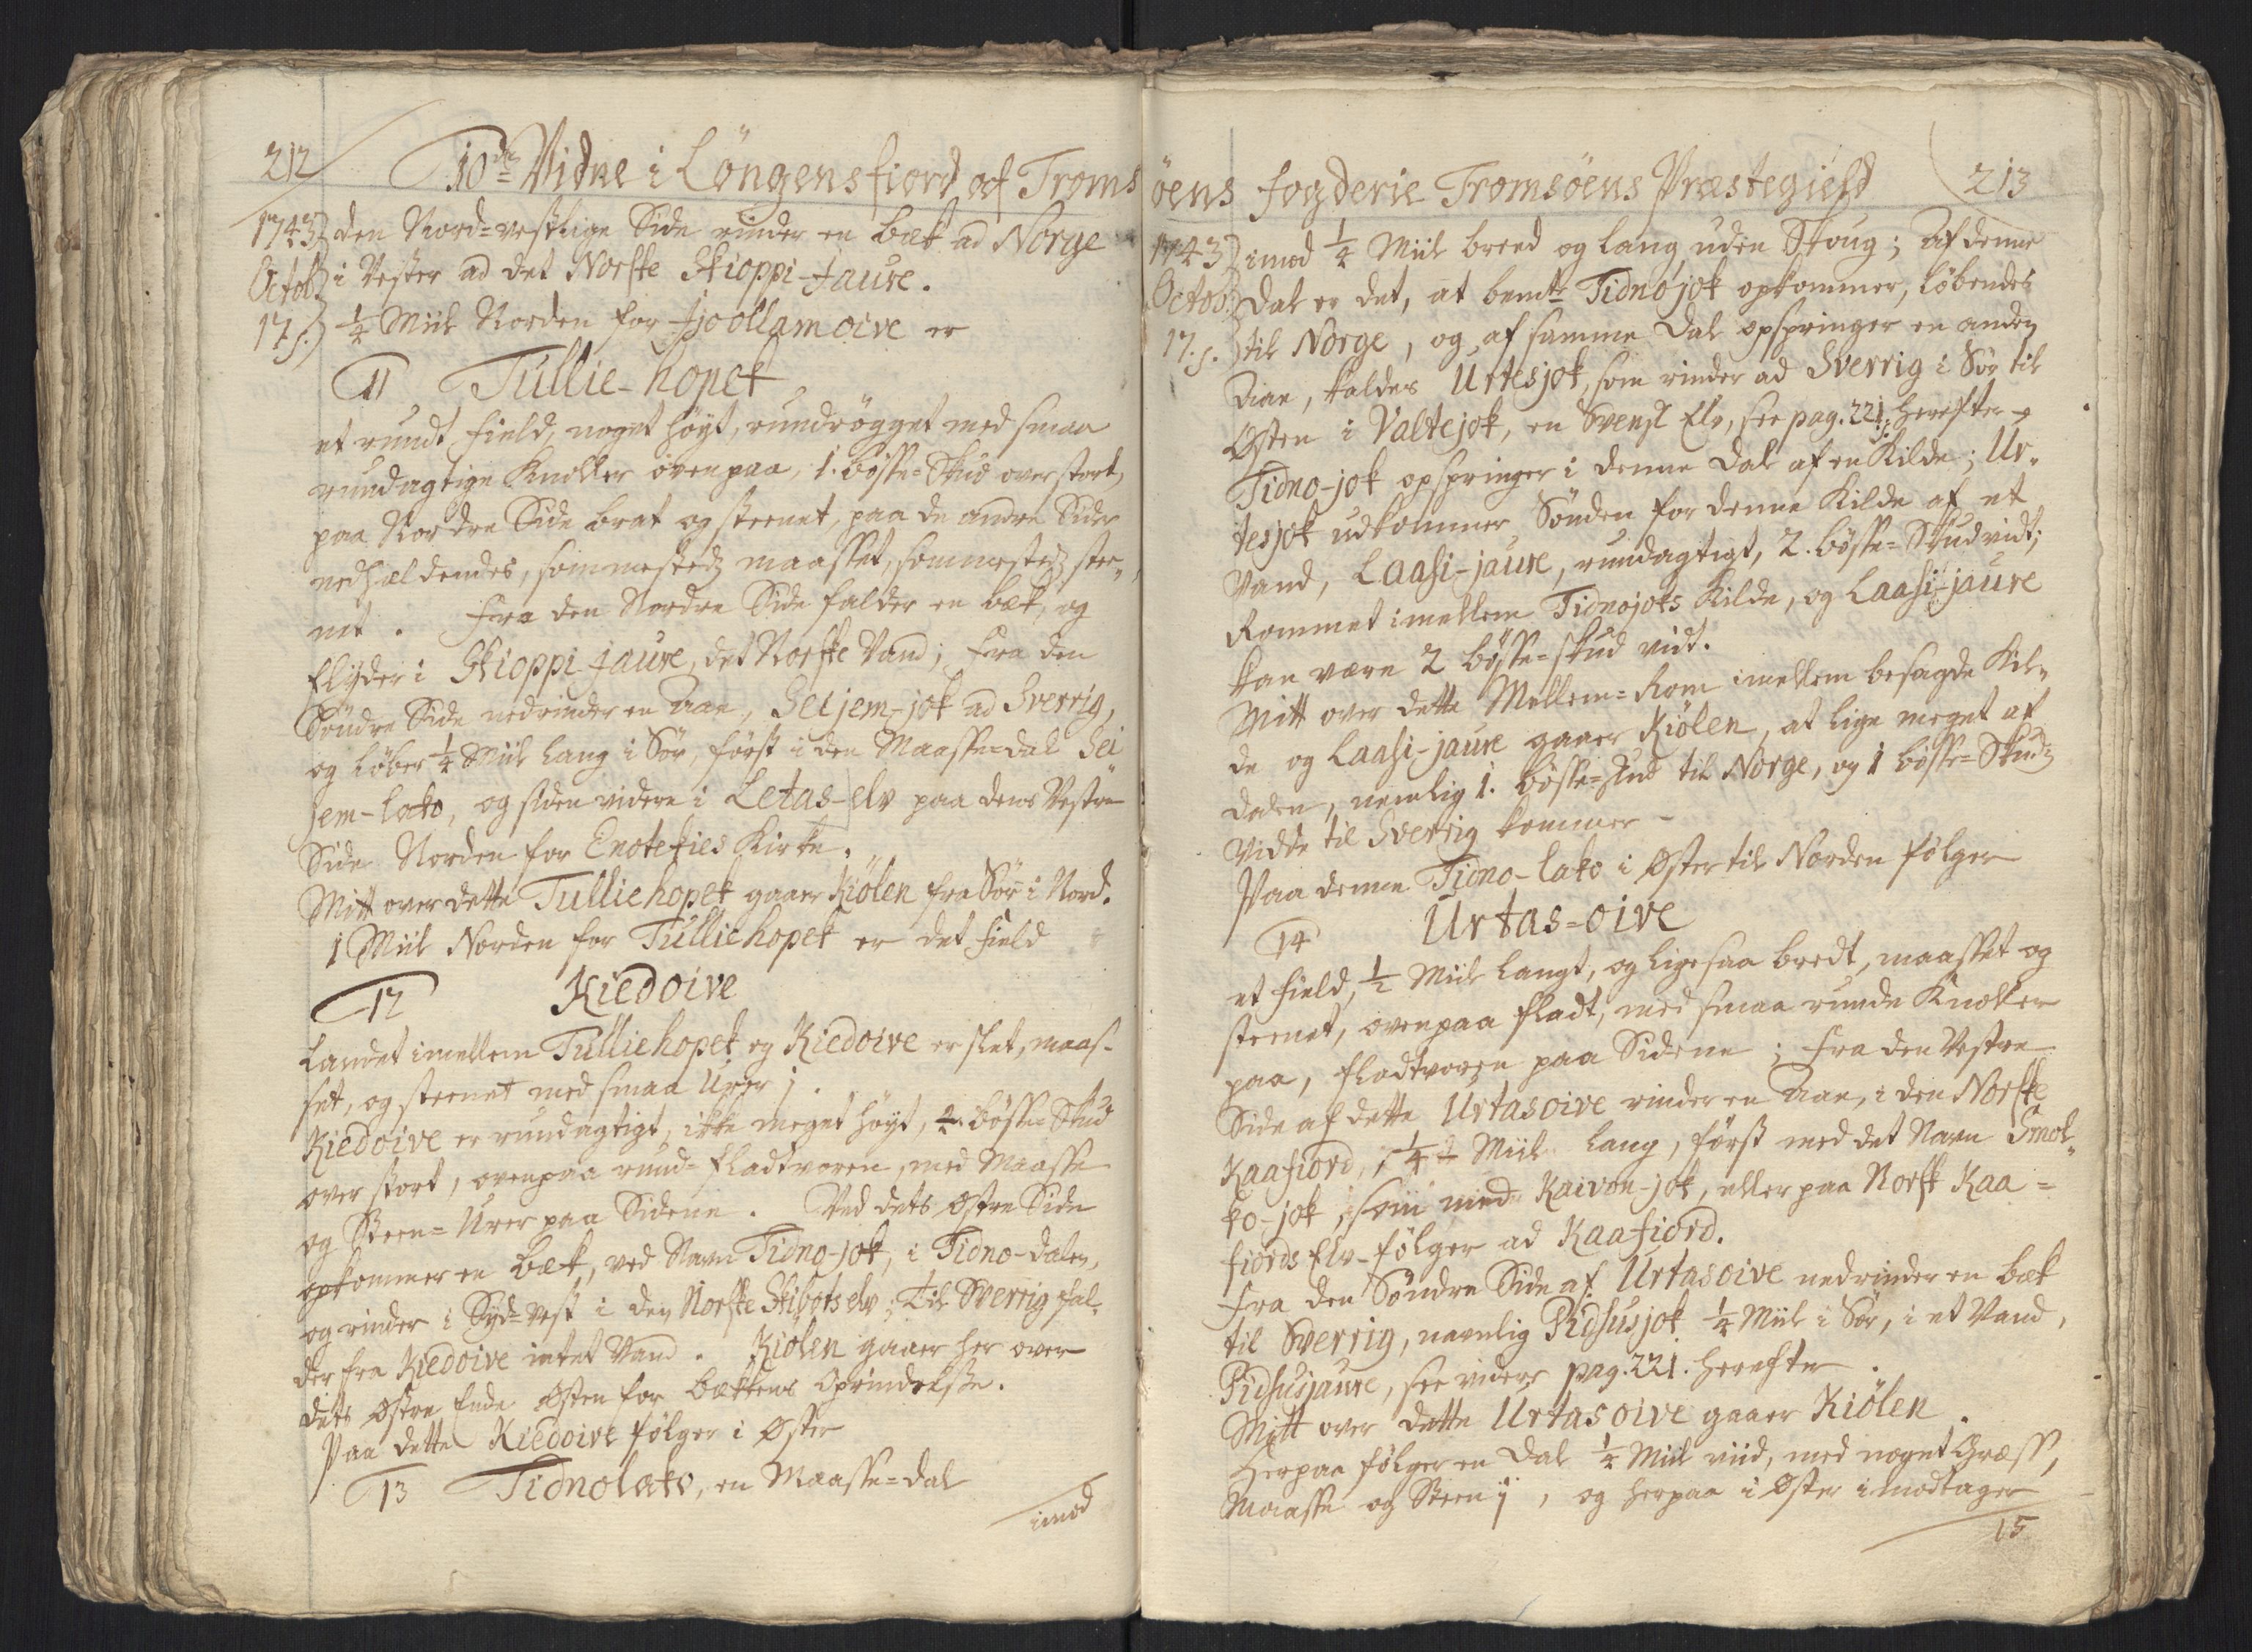 212
10de Vidne i Löngens fiord af Troms
1743 den Nord-vestlige Side rinder en bæk ad Norge
Octob. i Vester ad det Norske Skioppi-Jaure.
17.s. 1/4 Miil Norden for Jjoollamoive er
11 Tullie-hopet
et rundt field, noget höyt, rundrögget med smaa
rundagtige Knolter ovenpaa, 1. bösse-Skud over stort,
paa Nordre Side brat og steenet, paa de andre Sider
nedhældendes, sommesteds maasset, sommesteds stee-
net. Fra den Nordre Side falder en bæk, og
flyder i Skioppi Jaure, det Norske Vand; Fra den
Söndre Side nedrinder en Aae, Seijem-jok ad Sverrig,
og löber 1/4 Miil lang i Sör, först i den Maasse-dal Sei
jem-lako, og siden videre i Letas-elv paa dens Vestre
Side Norden for Enotekies Kirke.
Mitt over dette Tulliehopet gaaer Kiölen fra Sör i Nord.
1 Miil Norden for Tulliehopet er det field
12 Kiedoive
Landet imellem Tulliehopet og Kiedoive er slet, maas-
set, og steenet med smaa Urer;
Kiedoive er rundagtigt, ikke meget höyt, 2. bösse-Skud
over stort, ovenpaa rund-fladtvoren, med Maasse
og Steen-Urer paa Siderne. Ved dets östre Side
opkommer en bæk, ved Navn Tidno-jok, i Tidno-dalen,
og rinder i Syd-vest i den Norske Skibots elv; Til Sverrig fal-
der fra Kiedoive intet Vand. Kiölen gaaer her over
dets östre Ende Østen for bækkens Oprindelse.
Paa dette Kiedoive fölger i Öster
13 Tidnolako, en Maasse-dal
imod
öens fogderie Tromsöens Præstegield
213
1743 imod 1/4 Miil breed og lang, uden Skoug; Af denne
Octob. Dal er det, at bemte Tidnojok opkommer, löbendes
17.s. til Norge, og af samme Dal opspringer en anden
Aae, kaldes Urtesjok, som rinder ad Sverrig i Sör til
Østen i Valtejok, en Svensk Elv, see pag. 221. herefter
Tidno-jok opspringer i denne Dal af en Kilde; Ur-
tesjok udkommer Sönden for denne Kilde af et
Vand, Laasi-jaure, rundagtigt, 2. bösse-Skud vidt;
Rommet imellem Tidnojoks Kilde, og Laasi-jaure
kan være 2 bösse-skud vidt.
Mitt over dette Mellem-Rom imellem besagde Kil-
de og Laasi-jaure gaaer Kiölen, at lige meget af
Dalen, nemlig 1. bösse-skud til Norge, og 1 bösse-Skuds
Vidde til Sverrig kommer
Paa denne Tidno-lako i Öster til Norden fölger
14 Urtas-oive
et field, 1/2 Miil langt, og ligesaa bredt, maasset og
steenet, ovenpaa fladt, med smaa runde Knolter
paa, fladtvoren paa Siderne; Fra den Vestre
Side af dette Urtasoive rinder en Aae, i den Norske
Kaafiord, 1/4 Miil lang, först med det Navn Smol-
ko-jok, som med Kaivon-jok, eller paa Norsk Kaa-
fiords Elv fölger ad Kaafiord.
Fra den Söndre Side af Urtasoive nedrinder en bæk
til Sverrig, navnlig Pidsusjok 1/4 Miil i Sör, i et Vand,
Pidsusjaure, see videre pag. 221. herefter.
Mitt over dette Urtasoive gaaer Kiölen.
Herpaa fölger en Dal 1/4 Miil viid, med noget Græss,
Maasse og Steen i, og herpaa i Öster imodtager
15